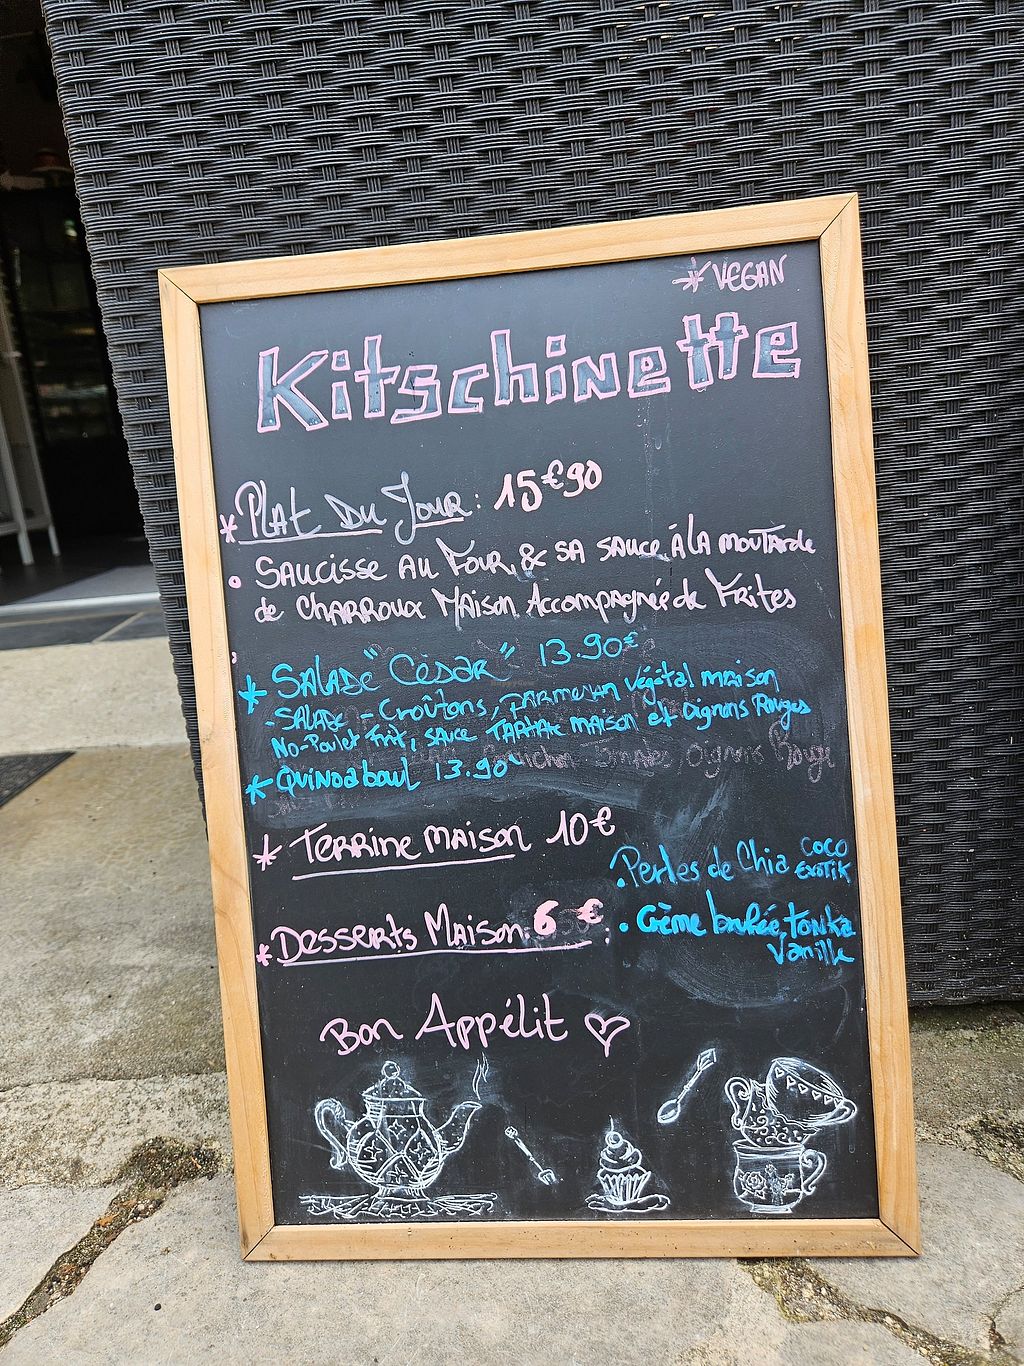 * VEGAN
Kitschinette
* Plat du Jour : 15€90
Saucisse au Four & sa sauce à la moutarde
de Charroux Maison Accompagnée de Frites
* Salade "César" 13.90€
- Salade - Croûtons, parmesan végétal maison
No-Poulet frit, sauce Tartare maison et Oignons Rouges
Oignons Rouge
* Quinoa bowl 13.90€
* Terrine Maison 10€
• Perles de Chia coco
Exotik
* Desserts Maison : 6€
• Crème brulée, tonka
Vanille
Bon Appélit